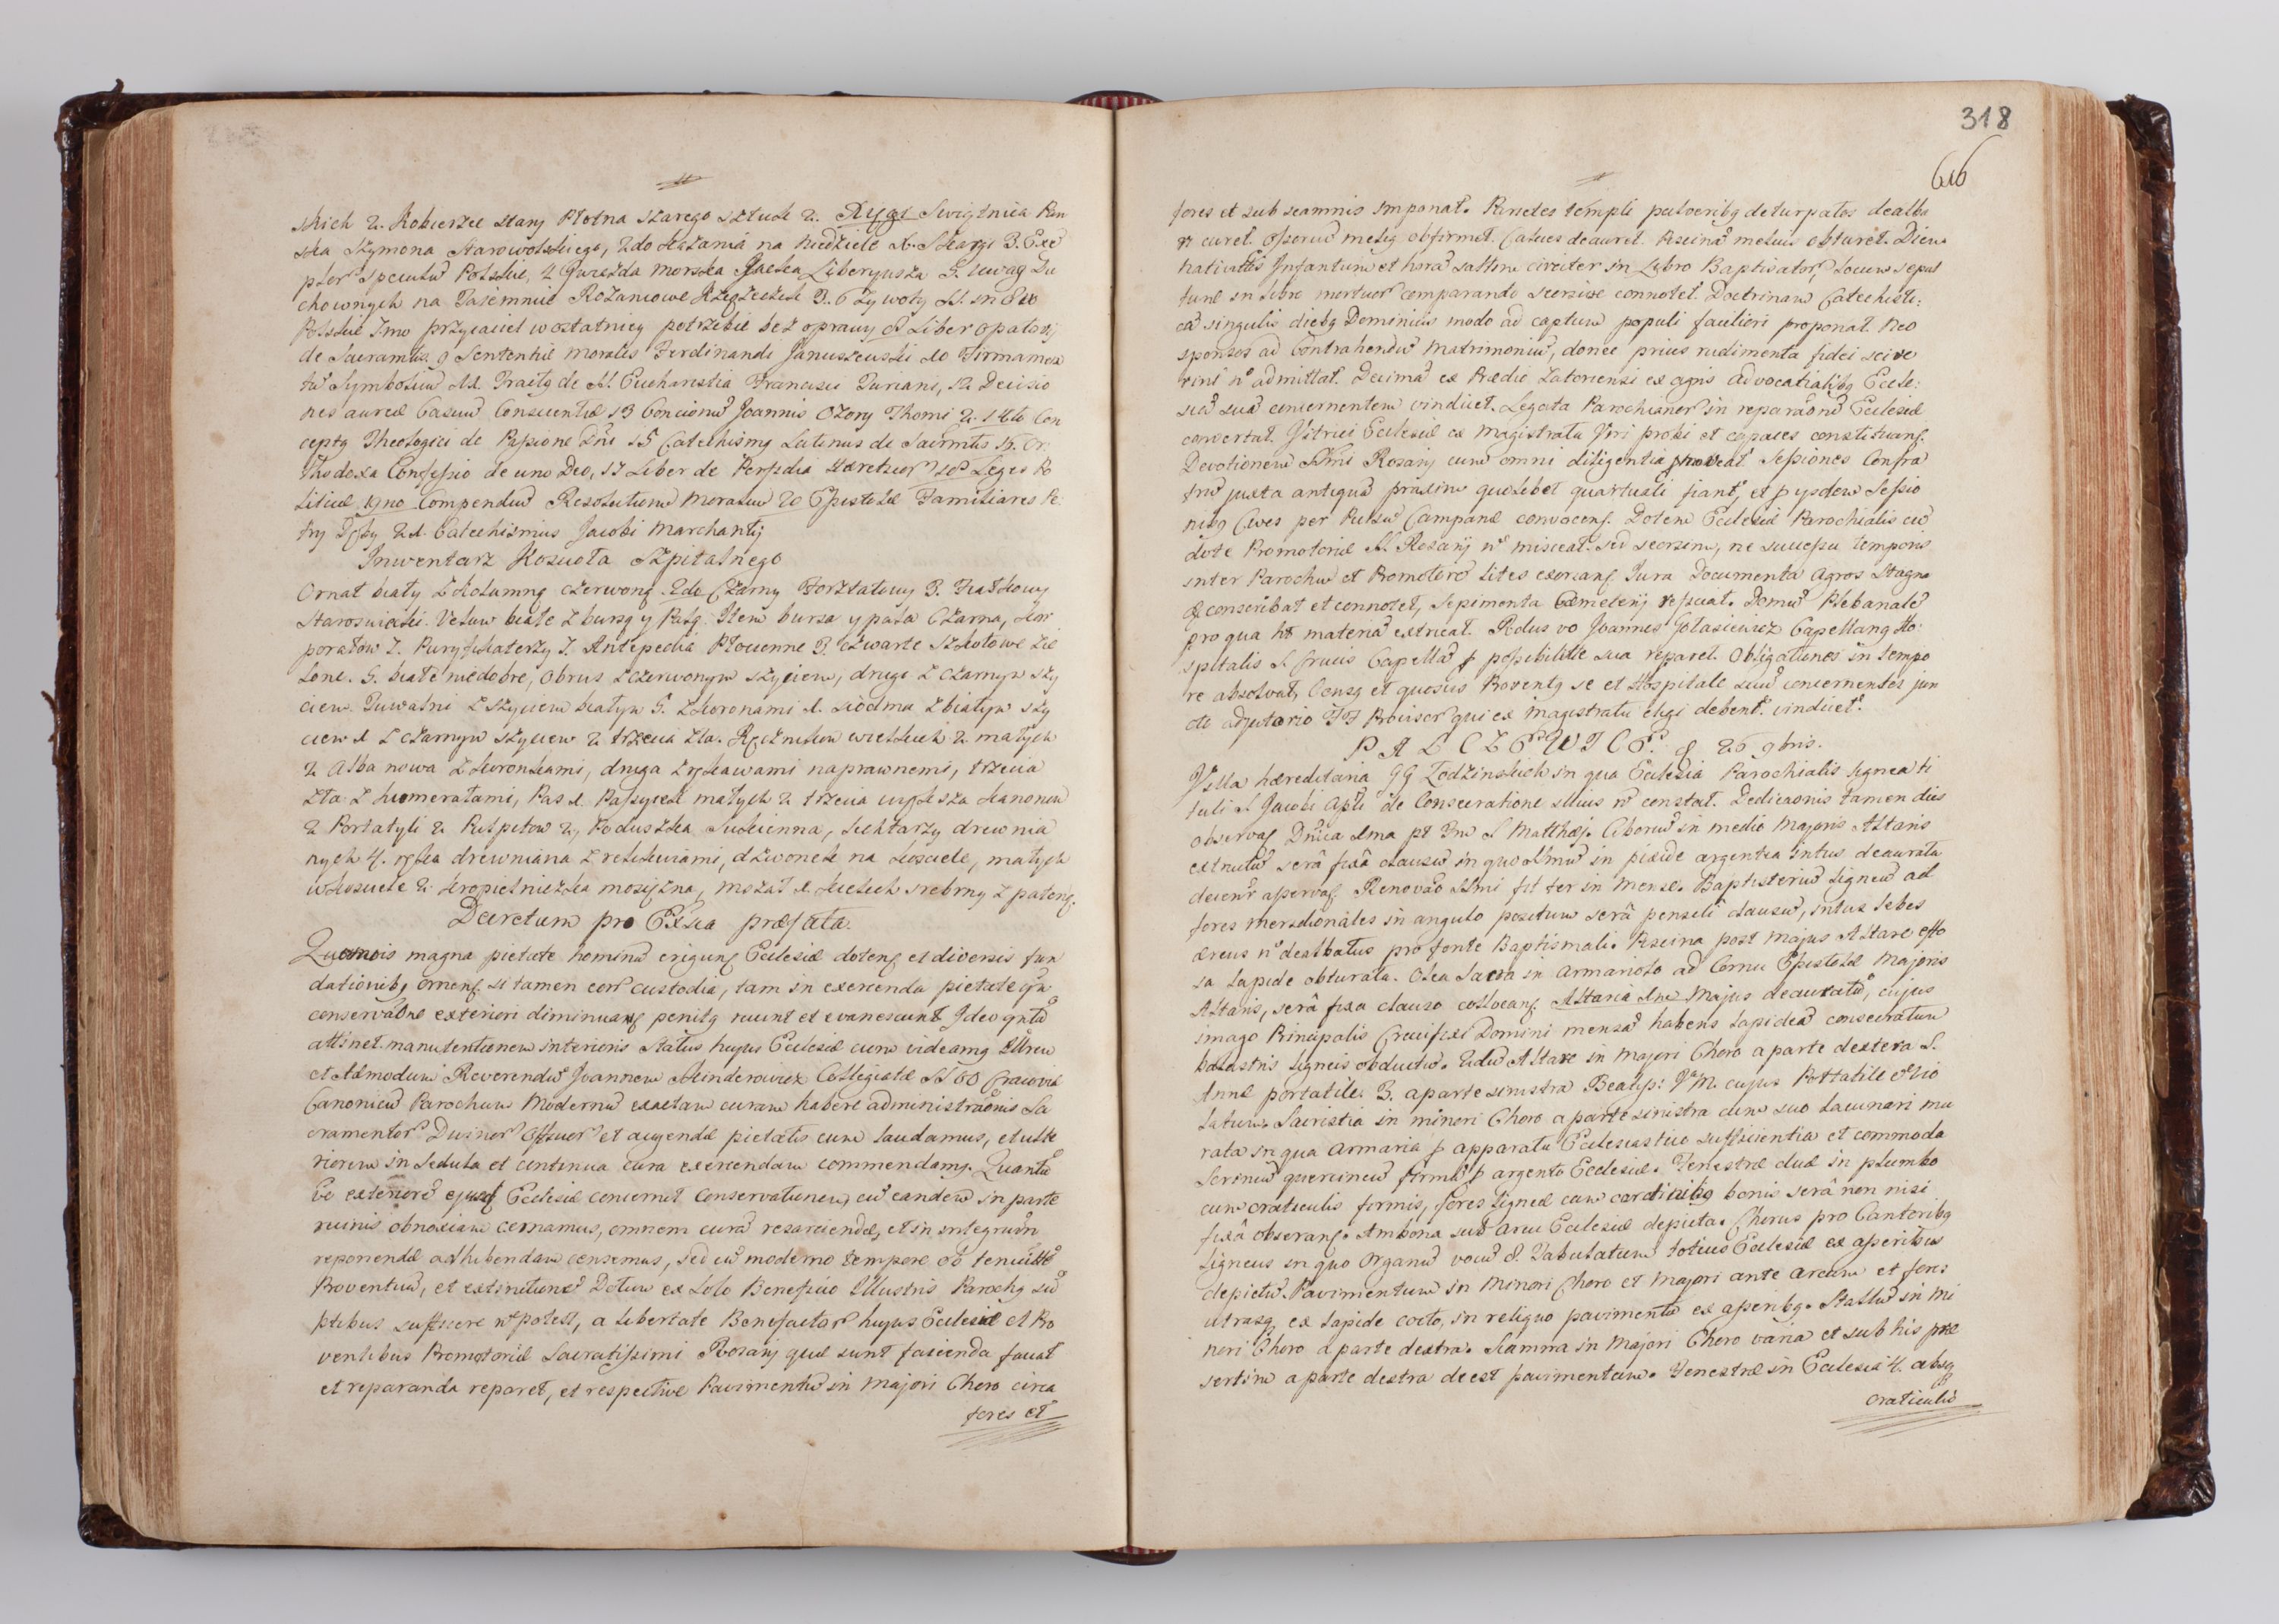 skich 2. Kobierzec stary Płotna starego sztuk 2. Xięgi Swiątnica Pan
ska Szymona Starowolskiego, 2do Kazania na Niedziele X. Skargi 3. Exem
plor Polskie, 4 Gwiazda morska
chownych na Taiemnice Rozancowe Książeczek 3. 6 Zywoty SS. in
Polskie 7mo przyiaciel w ostatniey potrzebie bez oprawy 8 Liber opatovij
de Sacramtis 9 Sententiæ morales Ferdinandi Januszewski 10 Firmamen
tũ Symbolicũ 11. Tractg de SS. Eucharistia Francisci Turiani, 12 Decisio
nes aureæ Casuũ Conscientiæ 13 Concionũ Joannis Ozory Thomi 2. 14to Con
ceptg Theologici de Passione Dñi 15 Catechismg Latinus de Sacrmtis 16. Or
thodoxa Confessio de uno Deo, 17 Liber de Perfidia Hæreticor 18o Leges Po
liticæ 19no Compendiũ Resolutionum Moralium 20 Epistolæ Familiares Pe
try 21. Catechismus Jacobi Marchantij
Inwentarz Koscioła Szpitalnego
Ornat biały z Kolumną czerwoną 2do Czarny Forsztatowy 3. Fiałkowy
Starosiacki. Velum białe z bursą y Palą. Item bursa y pala Czarna, Kor
porałow 7. Puryfikaterzy 7. Antepedia Płocienne 3. czwarte Szkotowe zie
lone. 5. białe niedobre, Obrus z czerwonym szyciem, drugi z czarnym szy
ciem. Tuwalni z szyciem białym 5. z Koronami 1. siodma z białym szy
ciem 1 z czarnym szyciem 2 trzecia zła. Ręcznikow wielkich 2. małych
2 Alba nowa z koronkami, druga z rękawami naprawnemi, trzecia
zła z humerałami, Pas 1. Pasyjek małych 2 trzecia więksża kanonow
2 Portatyli 2 Pulpetow 2, Poduszka sukienna, Lichtarzy drewnia
nych 4. ręka drewniana z relikwiami, dzwonek na kosciele, małych
w kosciele 2. kropielniczka mosiężna, Mszał 1. kielich srebrny z pateną.
Decretum pro Ecclesia præfata.
Quamvis magna pietate hominũ eriguntur Ecclesiæ dotentur et diversis fun
dationibg ornentur si tamen eor custodia, tam in exercenda pietate qm
conservãone exteriori diminuantur penitg ruunt et evanescunt. Ideo qntũ
attinet manutentionem interioris Status hujus Ecclesiæ cum videamg Illrem
et Admodum Reverendũ Joannem Minderowicz Collegiatæ SS OO Cracoviæ
Canonicũ Parochum Modernũ exactam curam habere administrãonis Sa
cramentor Divinor Officior et augendæ pietatis eum laudamus, et ulte
riorem in sedula et continua cura exercendam commendamg. Quantũ
vo exteriorẽ ejusd Ecclesiæ concernit Conservationem, cũ eandem in parte
ruinis obnoxiam cernamus, omnem curã resarciendæ, et in integrum
reponendæ adhibendam censemus, sed cũ moderno tempore ob tenuitatẽ
Proventuũ, et extinctionẽ Dotum ex solo Beneficio Illustris Parochg sũ
ptibus sufficere nõ potest, a libertate Benefactor hujus Ecclesiæ et Pro
ventibus Promotoriæ Sacratissimi Rosarij quæ sunt facienda faciat
et reparanda reparet, et respective Pavimentũ in Majori Choro circa
fores et
318
616
fores et sub scamnis imponat. Parietes templi pulveribg deturpatos dealba
ri curet. Osseriũ melig obfirmet. Calices deauret. Piscinã melius obturet. Diem
nativitatis Infantium et horã saltem circiter in Libro Baptisator, Locum sepul
turæ in Libro mortuor comparando scorsive connotet. Doctrinam Catechisti:
cã singulis diebg Dominicis modo ad captum populi faciliori proponat. Neo
sponsos ad Contrahendũ Matrimoniũ, donec prius rudimenta fidei scive
rint nõ admittat. Decimã ex Prædio Zatoriensi ex agris advocatialibg Eccle:
siã suã concernentem vindicet. Legata Parochianor in reparãonẽ Ecclesiæ
convertat. Vitrici Ecclesiæ ex Magistratu Viri probi et capaces constituantur.
Devotionem SSmi Rosarij cum omni diligentia provehat. Sessiones Confra
trũ juxta antiquã praxim quolibet quartuali fiant, et p ysdem Sessio
nibg Cives per Pulsũ Campanæ convocentur. Dotem Ecclesiæ Parochialis cũ
dote Promotoriæ SS. Rosarij nõ misceat. sed seorsim, ne successu temporis
inter Parochũ et Promotorẽ lites exoriantur. Jura Documenta Agros Stagna
conscribat et connotet, Sepimenta Cæmeterij reficiat. Domũ Plebanalẽ
pro qua ht materiã extricat. Rdus vo Joannes Golasiewicz Capellang Ho:
spitalis S Crucis Capellã p possibilitate sua reparet. Obligationes in tempo
re absolvat, Censg et quosvis Proventg se et Hospitale suũ concernentes jun
cto adjutorio FF Provisor qui ex Magistratu eligi debent. vindicet.
PALCZEWICE. d 26 9bris.
Villa hæreditaria GG Łodzinskich in qua Ecclesia Parochialis lignea ti
tuli S Jacobi Apli de Consecratione illius nõ constat. Dedicaonis tamen dies
observatur Dnica 1ma pt Fm S Matthæj. Ciboriũ in medio Majoris Altaris
extructũ será fixâ clausũ in quo SSmũ in pixide argentea intus deaurata
decenter asservatur. Renovão SSmi fit ter in Mense. Baptisteriũ ligneũ ad
fores meridionales in angulo positum serâ pensili clausũ, intus lebes
æreus nõ dealbatus pro fonte Baptismali. Piscina post majus Altare effo
sa lapide obturata. Olea Sacra in Armariolo ad Cornu Epistolæ Majoris
Altaris, serâ fixa clauso collocantur. Altaria 1m Majus deauratũ, cujus
imago Principalis Crucifixi Domini mensã habens lapideã consecratam
balastris ligneis obductũ. 2dũ Altare in Majori Choro a parte dextera S.
Annæ portatile. 3. a parte sinistra Beatiss: V M. cujus Portatile vio
latum. Sacristia in minori Choro a parte sinistra cum suo lacunari mu
rata in qua Armaria p apparatu Ecclesiastico sufficientia et commoda
Scriniũ quercineũ firmũ p argento Ecclesiæ. Fenestræ duæ in plumbo
cum craticulis firmis, fores ligneæ cum cardinibg bonis serâ non nisi
fixâ obserantur. Ambona sub arcu Ecclesiæ depicta. Chorus pro Cantoribg
ligneus in quo Organũ vocũ 8. Tabulatum totius Ecclesiæ ex asseribus
depictũ. Pavimentum in Minori Choro et Majori ante arcum et fores
utrasq ex lapide cocto, in reliquo pavimentũ ex asseribg. Stallũ in Mi
nori Choro a parte dextra. Scamna in Majori Choro varia et sub his præ
sertim a parte dextra deest pavimentum. Fenestræ in Ecclesia 4. absq
craticulis